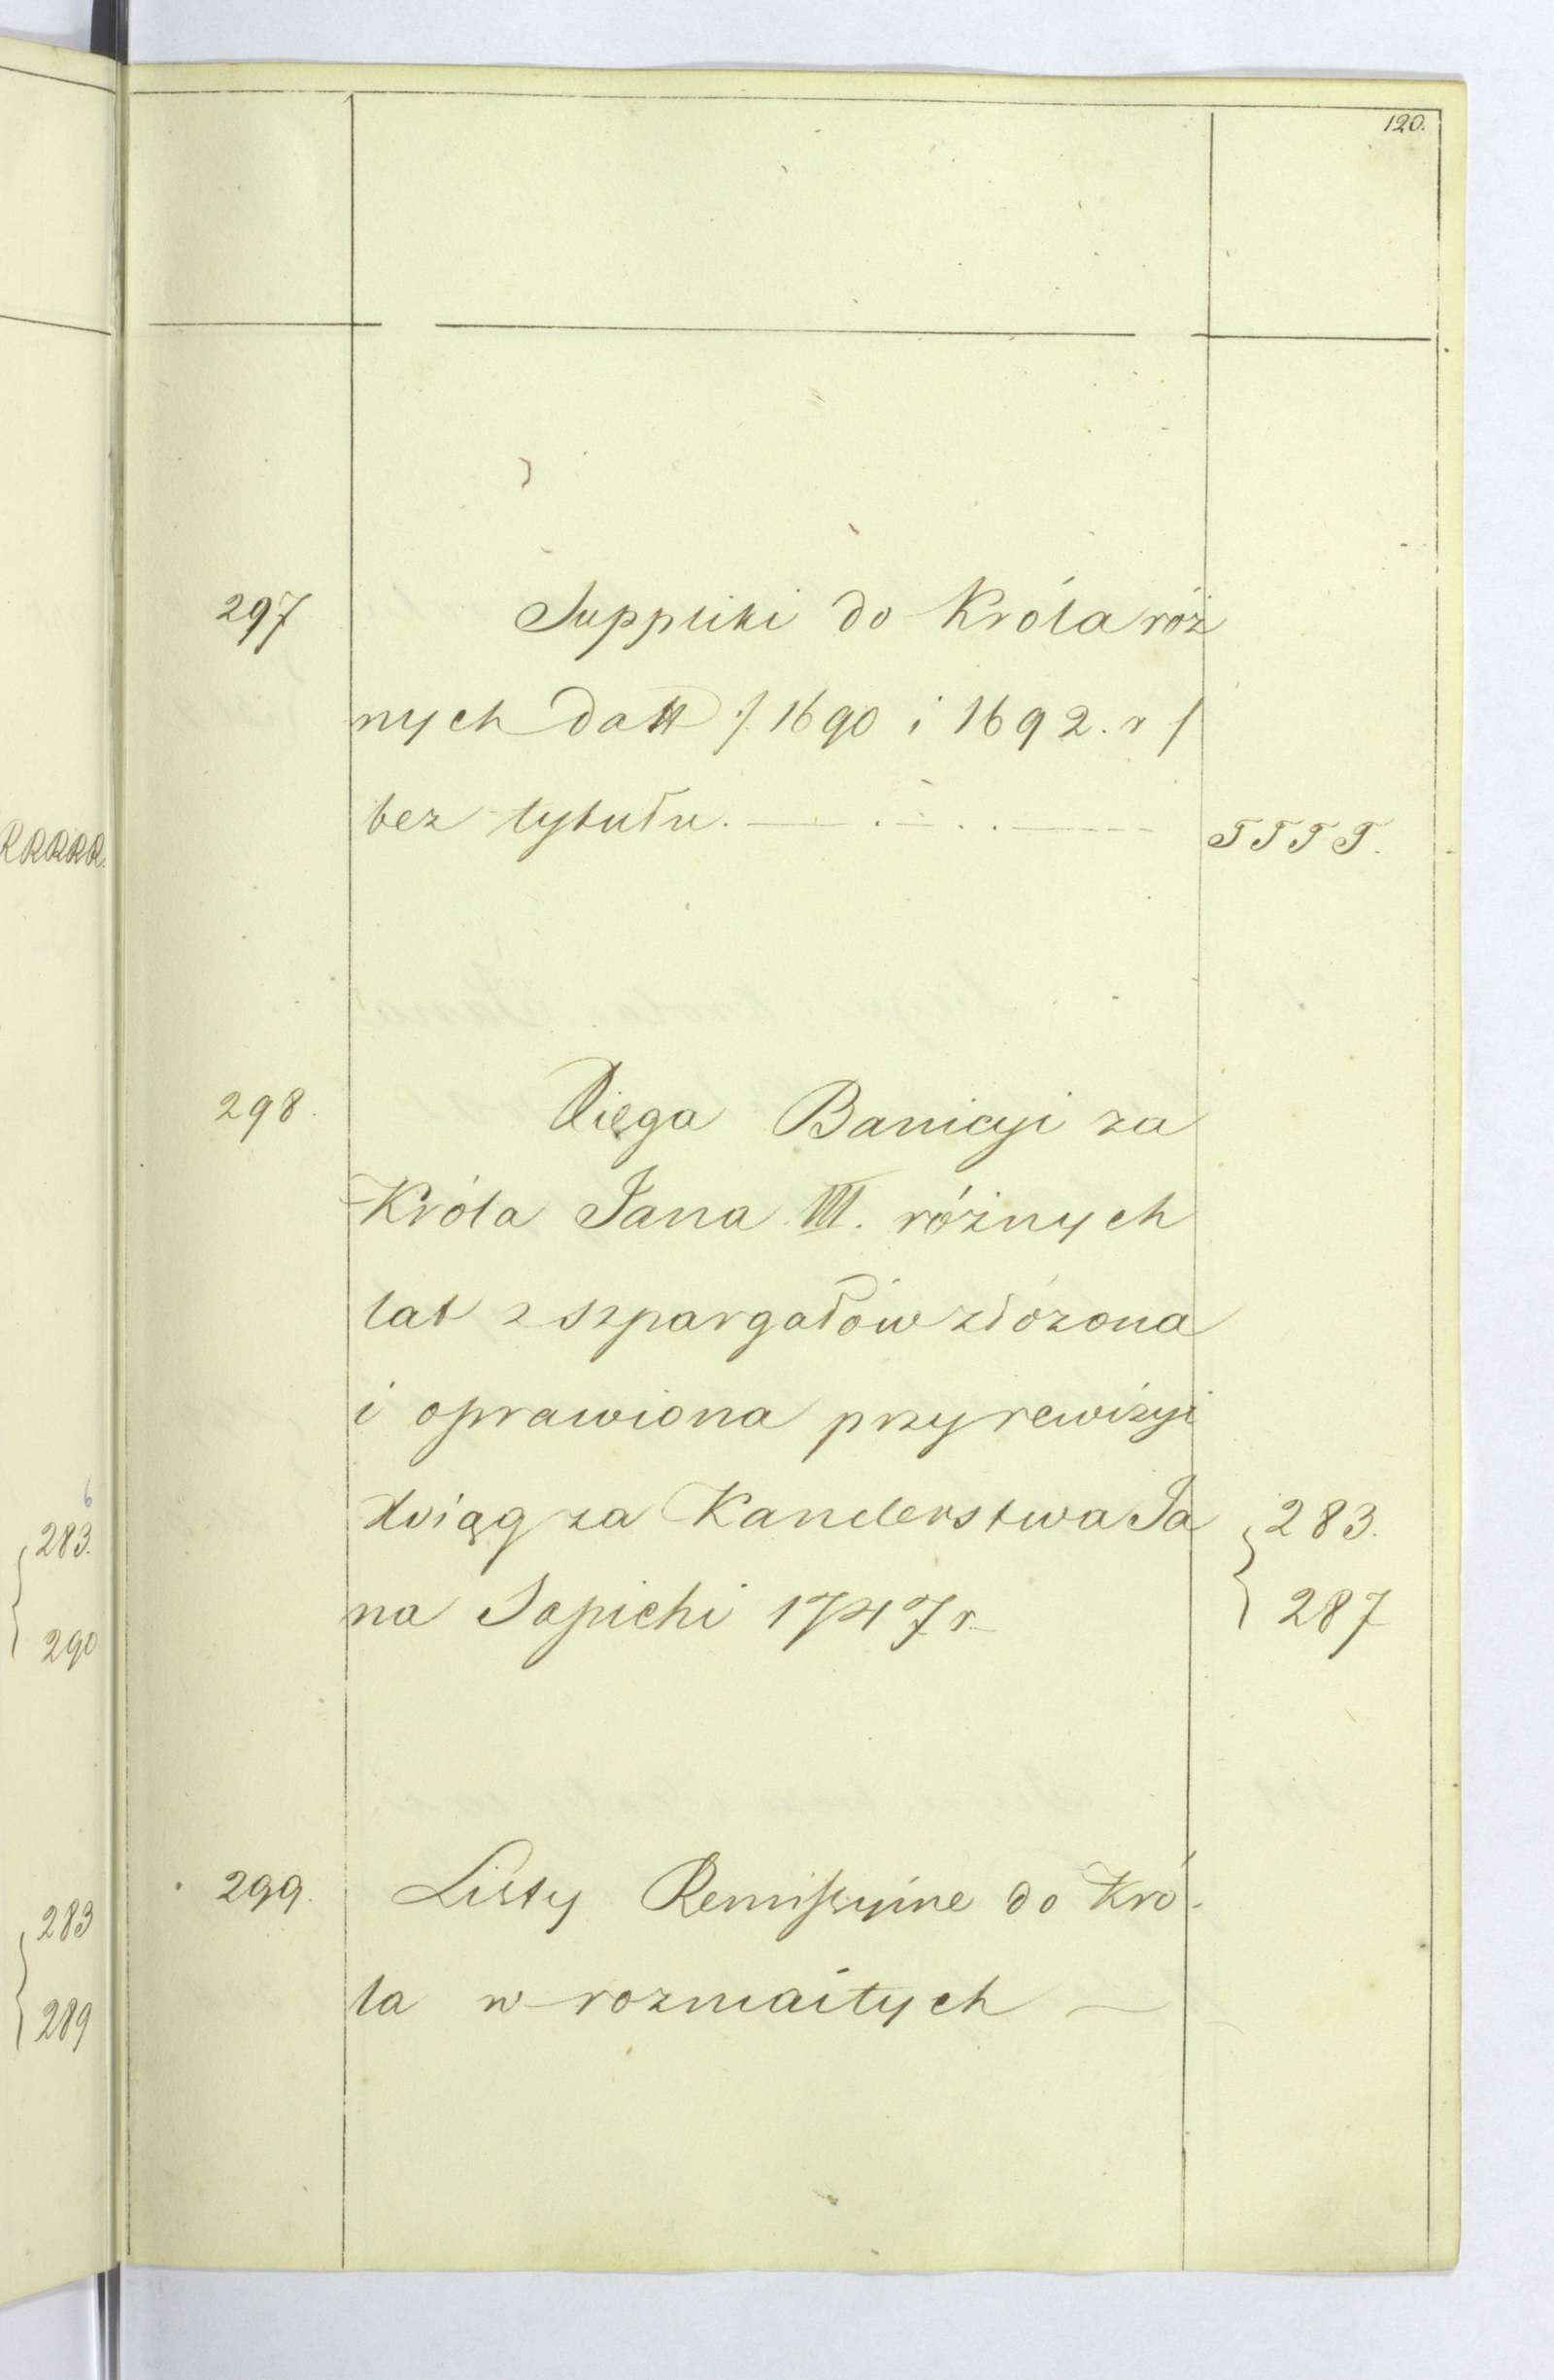 120.
297 Suppliki do Króla róż
nych datt /. 1690 i 1692. r /
bez tytułu. TTTT.
298. Xięga Banicyi za
Króla Jana III. różnych
lat z szpargałów złożona
i oprawiona przy rewizyi
Xviąg za Kanclerstwa Ja 283.
na Sapiehi 1747 r. 287
299. Listy Remissyine do Kró-
la w rozmaitych
RRRRR.
6
283.
290
283
289